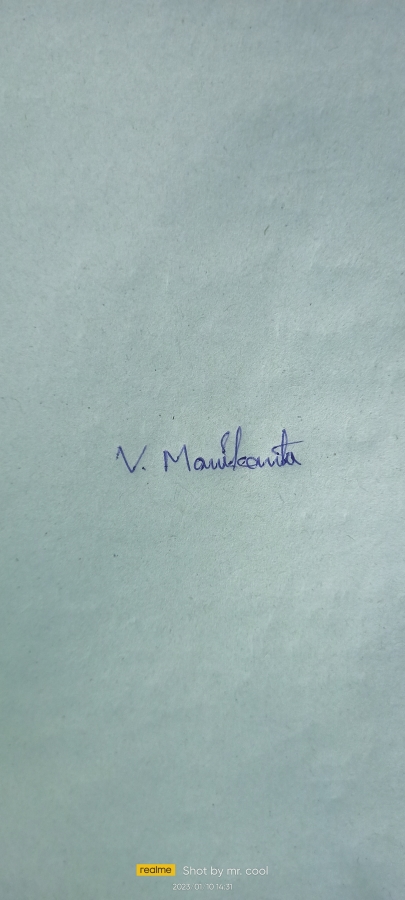 V. Manikanta
realme Shot by mr. cool
2023.01.10 14:31